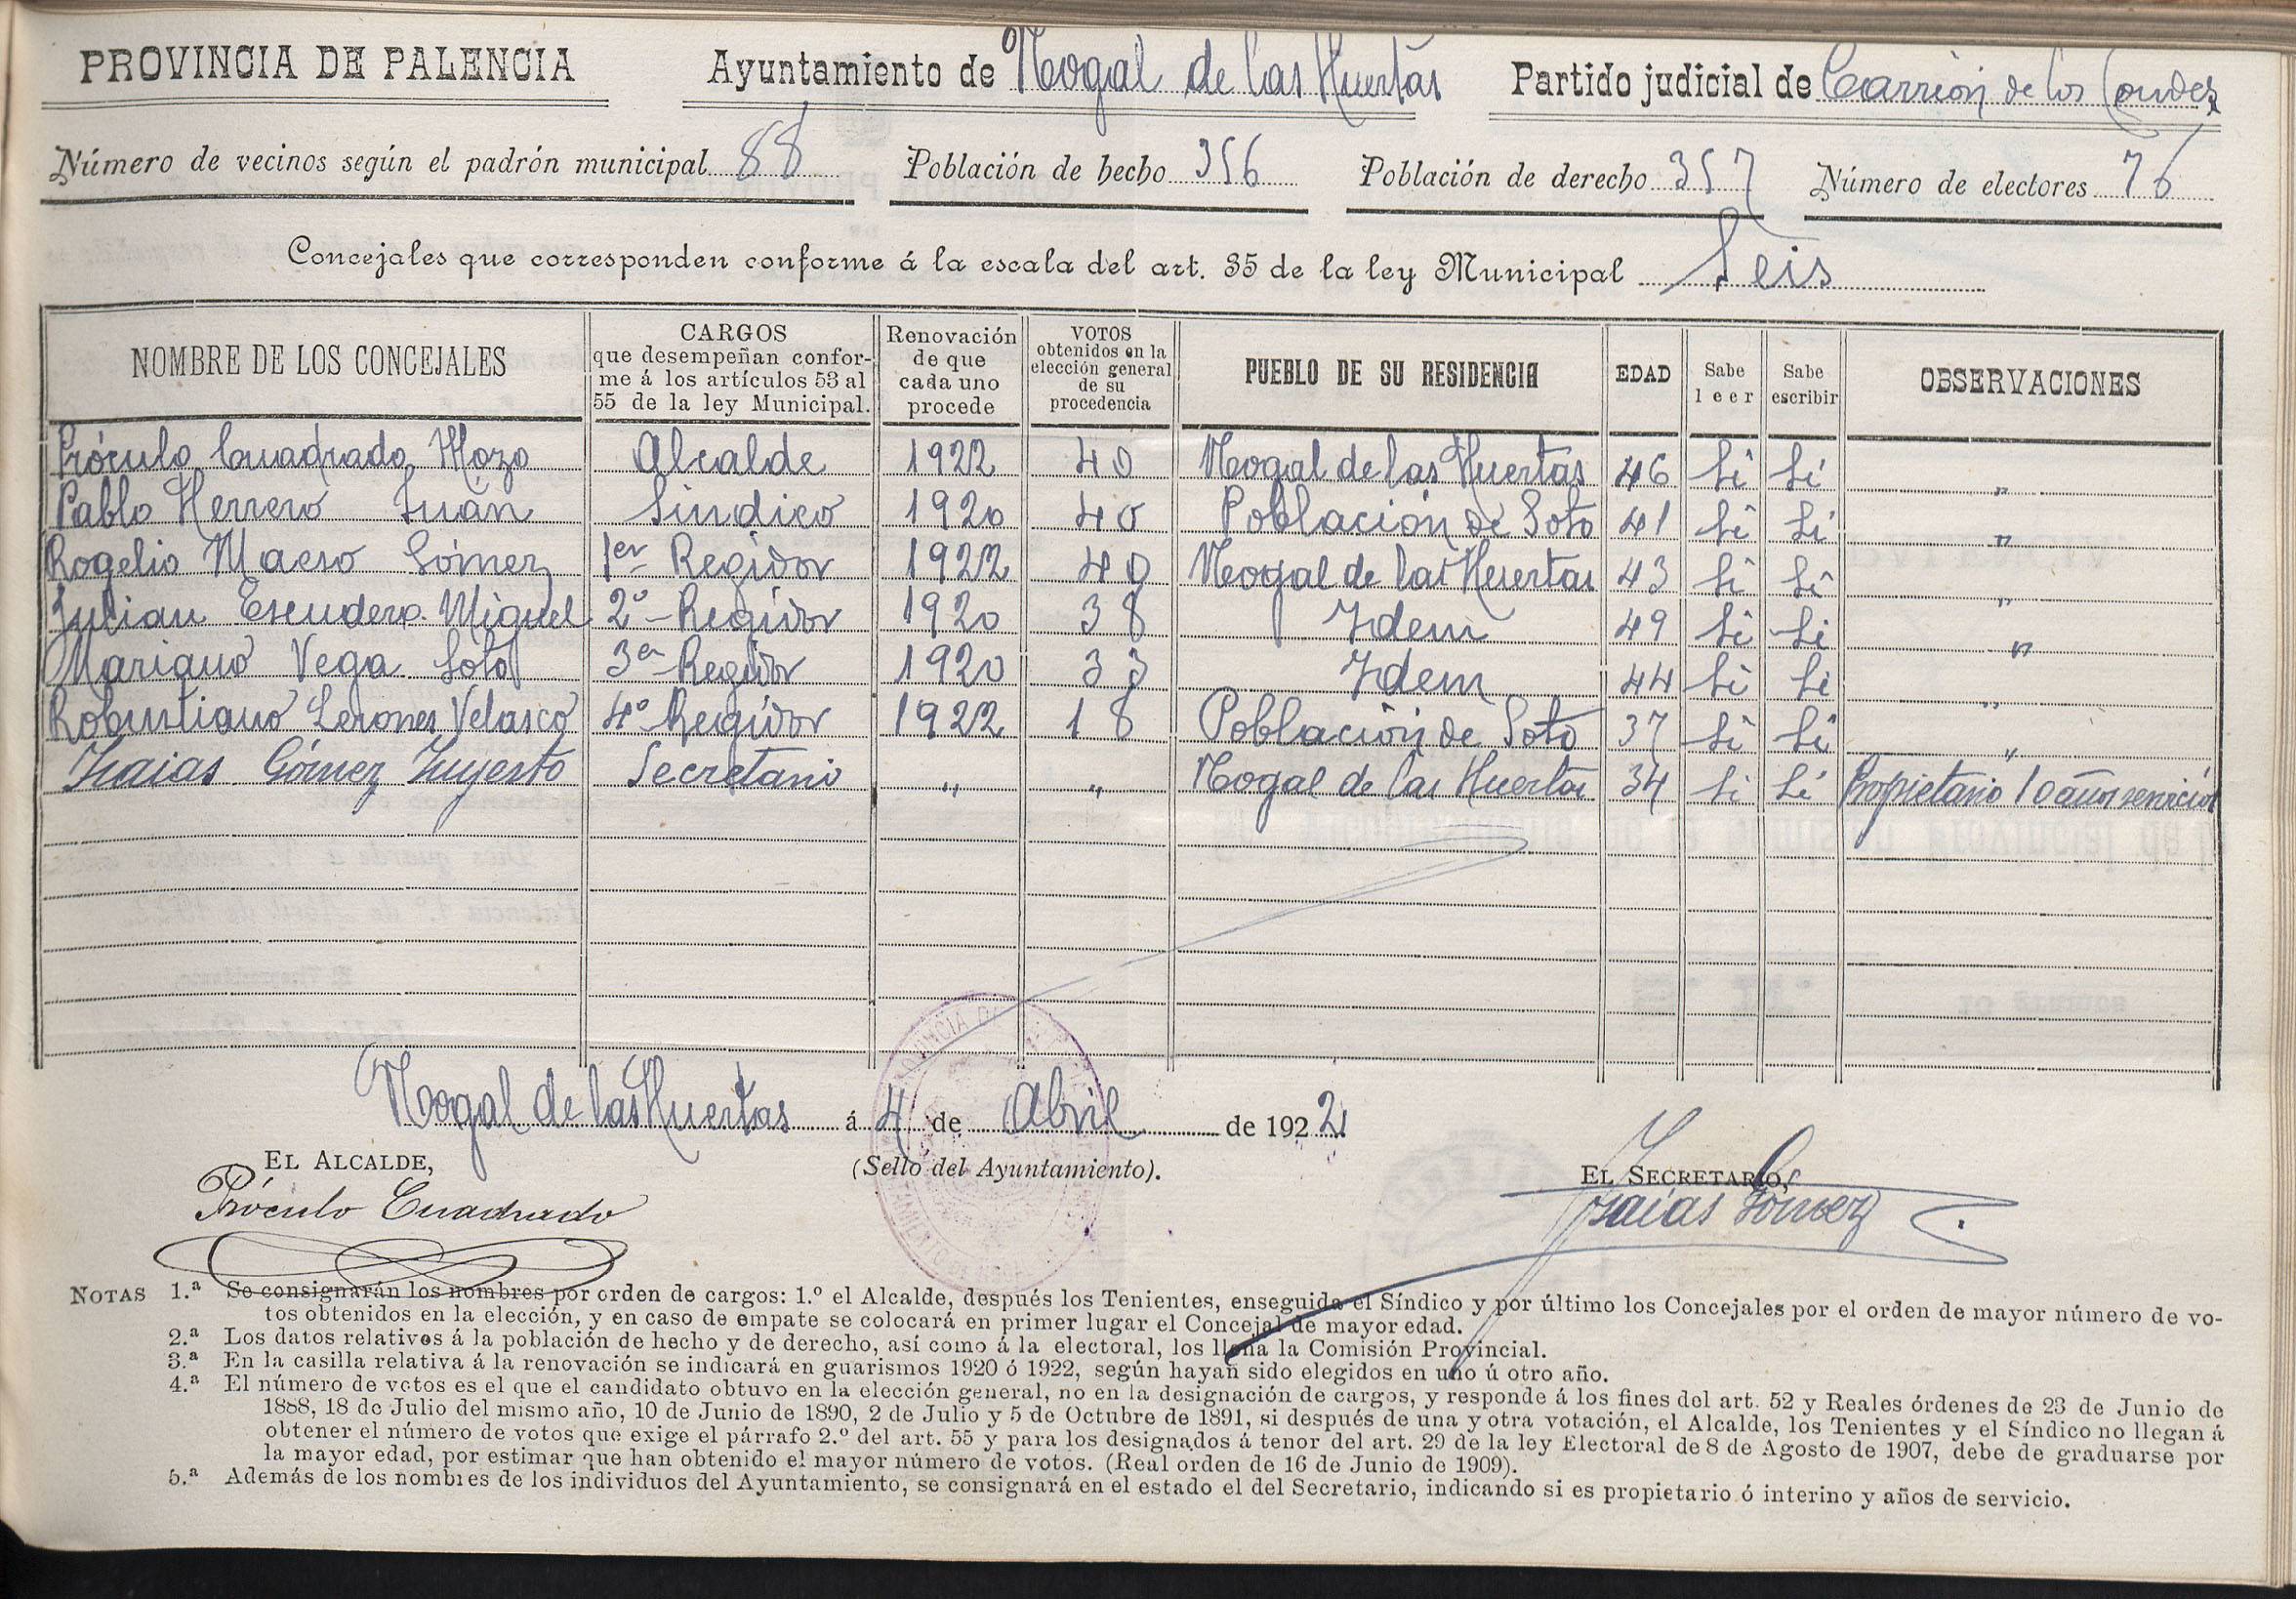 PROVINCIA DE PALENCIA Ayuntamiento de Nogal de las Huertas Partido judicial de Carrión de los Condes
Número de vecinos según el padrón municipal 88 Población de hecho 356 Población de derecho 357 Número de electores 76
Concejales que corresponden conforme á la escala del art. 35 de la ley Municipal Seis
NOMBRE DE LOS CONCEJALES
CARGOS
que desempeñan confor-
me á los artículos 53 al
55 de la ley Municipal.
Renovación
de que
cada uno
procede
VOTOS
obtenidos en la
elección general
de su
procedencia
PUEBLO DE SU RESIDENCIA
EDAD
Sabe
leer
Sabe
escribir
OBSERVACIONES
Próculo Cuadrado Mozo Alcalde 1922 40 Nogal de las Huertas 46 Si Sí "
Pablo Herrero Juán Sindico 1920 40 Población de Soto 41 Si Sí "
Rogelio Maeso Gómez 1er Regidor 1922 40 Nogal de las Huertas 43 Si Si "
Julian Escudero Miguel 2º Regidor 1920 38 Idem 49 Si Si "
Mariano Vega Soto 3er Regidor 1920 33 Idem 44 Si Si "
Robustiano Lerones Velasco 4º Regidor 1922 18 Población de Soto 37 Si Si "
Isaias Gómez Secretario " " Nogal de las Huertas 34 Si Sí Propietario 10 años servicios
Nogal de las Huertas á 4 de Abril de 1922.
EL ALCALDE,
(Sello del Ayuntamiento).
EL SECRETARIO,
Próculo Cuadrado
Isaias Gómez
NOTAS 1.ª Se consignarán los nombres por orden de cargos: 1.º el Alcalde, después los Tenientes, enseguida el Síndico y por último los Concejales por el orden de mayor número de vo-
tos obtenidos en la elección, y en caso de empate se colocará en primer lugar el Concejal de mayor edad.
2.ª Los datos relativos á la población de hecho y de derecho, así como á la electoral, los llena la Comisión Provincial.
3.ª En la casilla relativa á la renovación se indicará en guarismos 1920 ó 1922, según hayan sido elegidos en uno ú otro año.
4.ª El número de votos es el que el candidato obtuvo en la elección general, no en la designación de cargos, y responde á los fines del art. 52 y Reales órdenes de 23 de Junio de
1888, 18 de Julio del mismo año, 10 de Junio de 1890, 2 de Julio y 5 de Octubre de 1891, si después de una y otra votación, el Alcalde, los Tenientes y el Síndico no llegan á
obtener el número de votos que exige el párrafo 2.º del art. 55 y para los designados á tenor del art. 29 de la ley Electoral de 8 de Agosto de 1907, debe de graduarse por
la mayor edad, por estimar que han obtenido el mayor número de votos. (Real orden de 16 de Junio de 1909).
5.ª Además de los nombres de los individuos del Ayuntamiento, se consignará en el estado el del Secretario, indicando si es propietario ó interino y años de servicio.